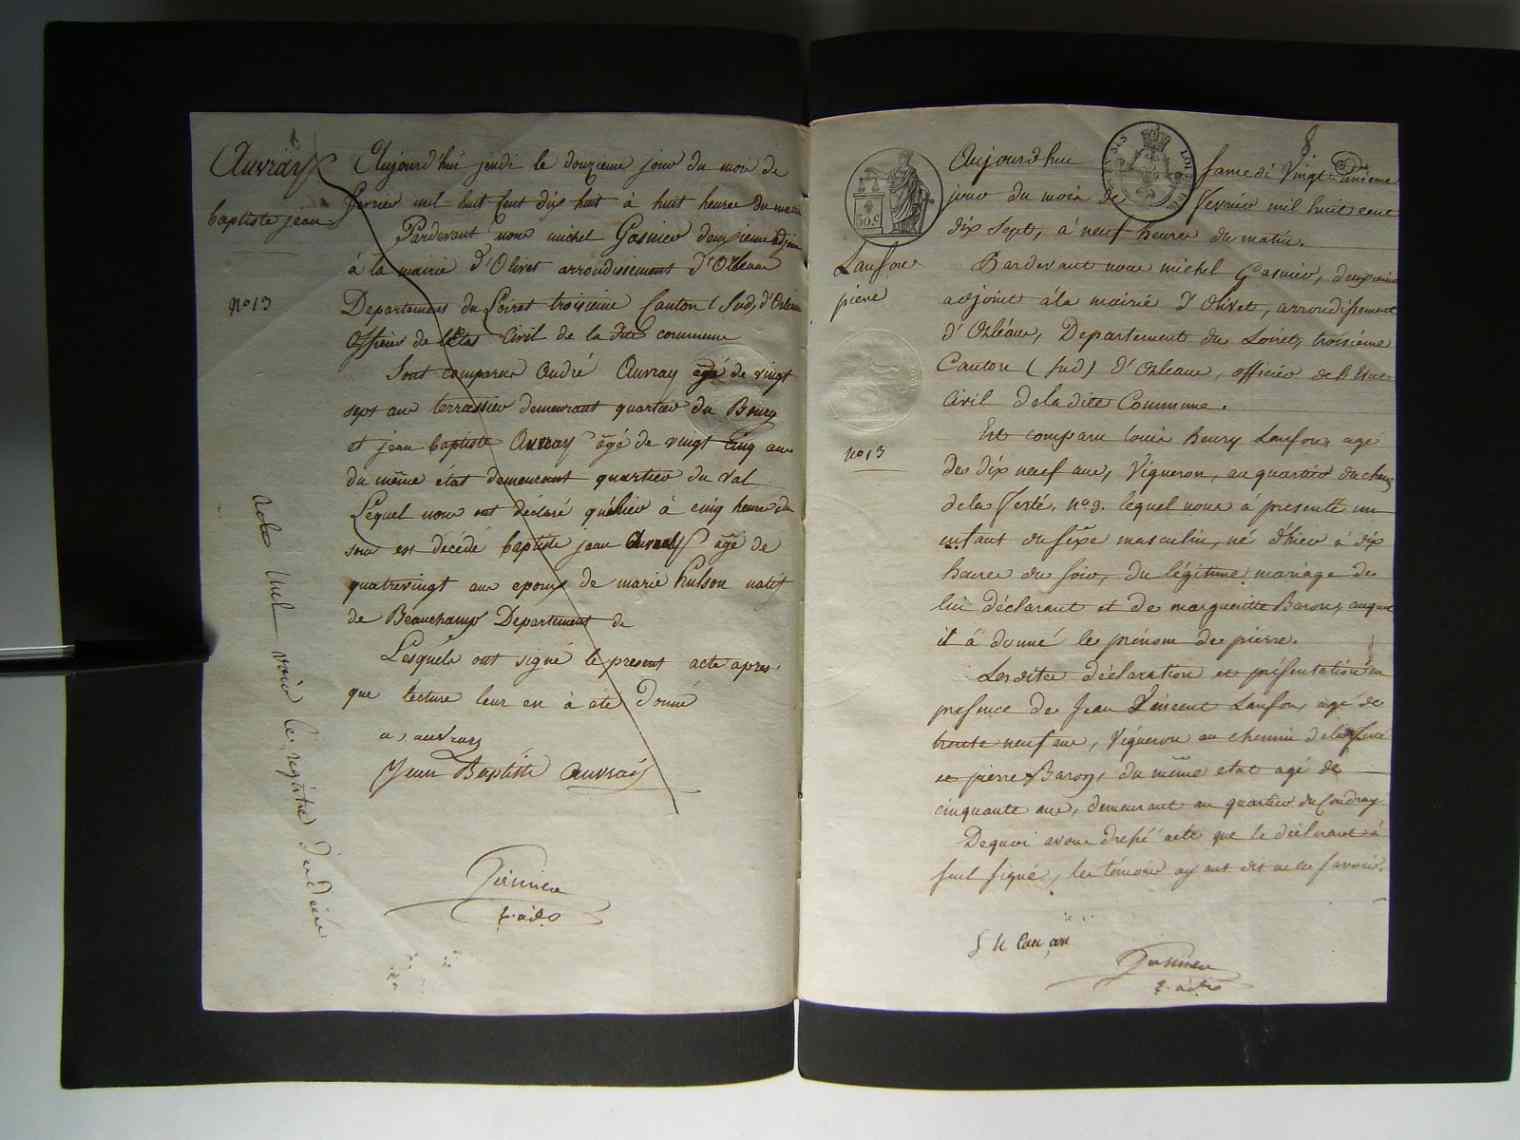 Auvray
baptiste jean
N° 13
Aujourd'hui jeudi le douzieme jour du mois de
fevrier mil huit cent dix huit à huit heures du matin
Pardevant nous michel Gasnier deuxieme adjoint
à la mairie d'Olivet arrondissement d'Orléans
Departement du Loiret troisieme Canton (Sud) d'Orleans
officier de l'Etat Civil de la dite commune
Sont comparus André Auvray agé de vingt
sept ans terrassier demeurant quartier du Bourg
et jean baptiste Auvray agé de vingt cinq ans
du même état demeurant quartier du Val
Lequel nous ont déclaré qu'hier à cinq heures du
soir est décédé baptiste jean Auvray agé de
quatrevingt ans epoux de marie natif
de Beauchamp Departement de
Lesquels ont signé le present acte apres
que lecture leur en à été donné
a, auvray
Jean Baptiste Auvray
Gasnier
2. adj
acte nul voir le registre
8
50 c
Aujourd'huy samedi Vingt
jour du mois de fevrier mil huit cent
dix sept, à neuf heures du matin.
Lanson
pierre
N° 13
Pardevant nous michel Gasnier, deuxieme
adjoint à la mairie d'Olivet, arrondissement
d'Orléans, Departement du Loiret, troisiéme
Canton (Sud) d'Orleans, officier de l'Etat
Civil de la dite Commune.
Est comparu Louis Beury agé
de dix neuf ans, Vigneron, au quartier du chemin
de la ferté, n° 9. lequel nous à presenté un
enfant du sexe masculin, né d'hier à dix
heures du soir, du légitime mariage de
lui déclarant et de margueritte Baron, auquel
il à donné le prénom de pierre.
Lesdites déclaration et présentation en
presence de Jean Vincent agé de
trente neuf ans, Vigneron au chemin de la ferté
et pierre Baron, du même etat agé de
cinquante ans, demeurant au quartier du Coudray
Dequoi avons dressé acte que le déclarant à
seul signé, les témoins ayant dit ne le savoir.
Gasnier
2. adj